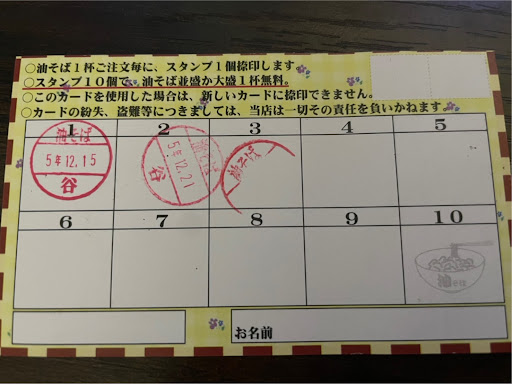 ○油そば1杯ご注文毎に、スタンプ1個捺印します
○スタンプ10個で、油そば並盛か大盛1杯無料。
○このカードを使用した場合は、新しいカードに捺印できません。
○カードの紛失、盗難等につきましては、当店は一切その責任を負いかねます。
1 2 3 4 5
油そば
5年12.15
谷
油そば
5年12.21
谷
油そば
6 7 8 9 10
油そば
お名前